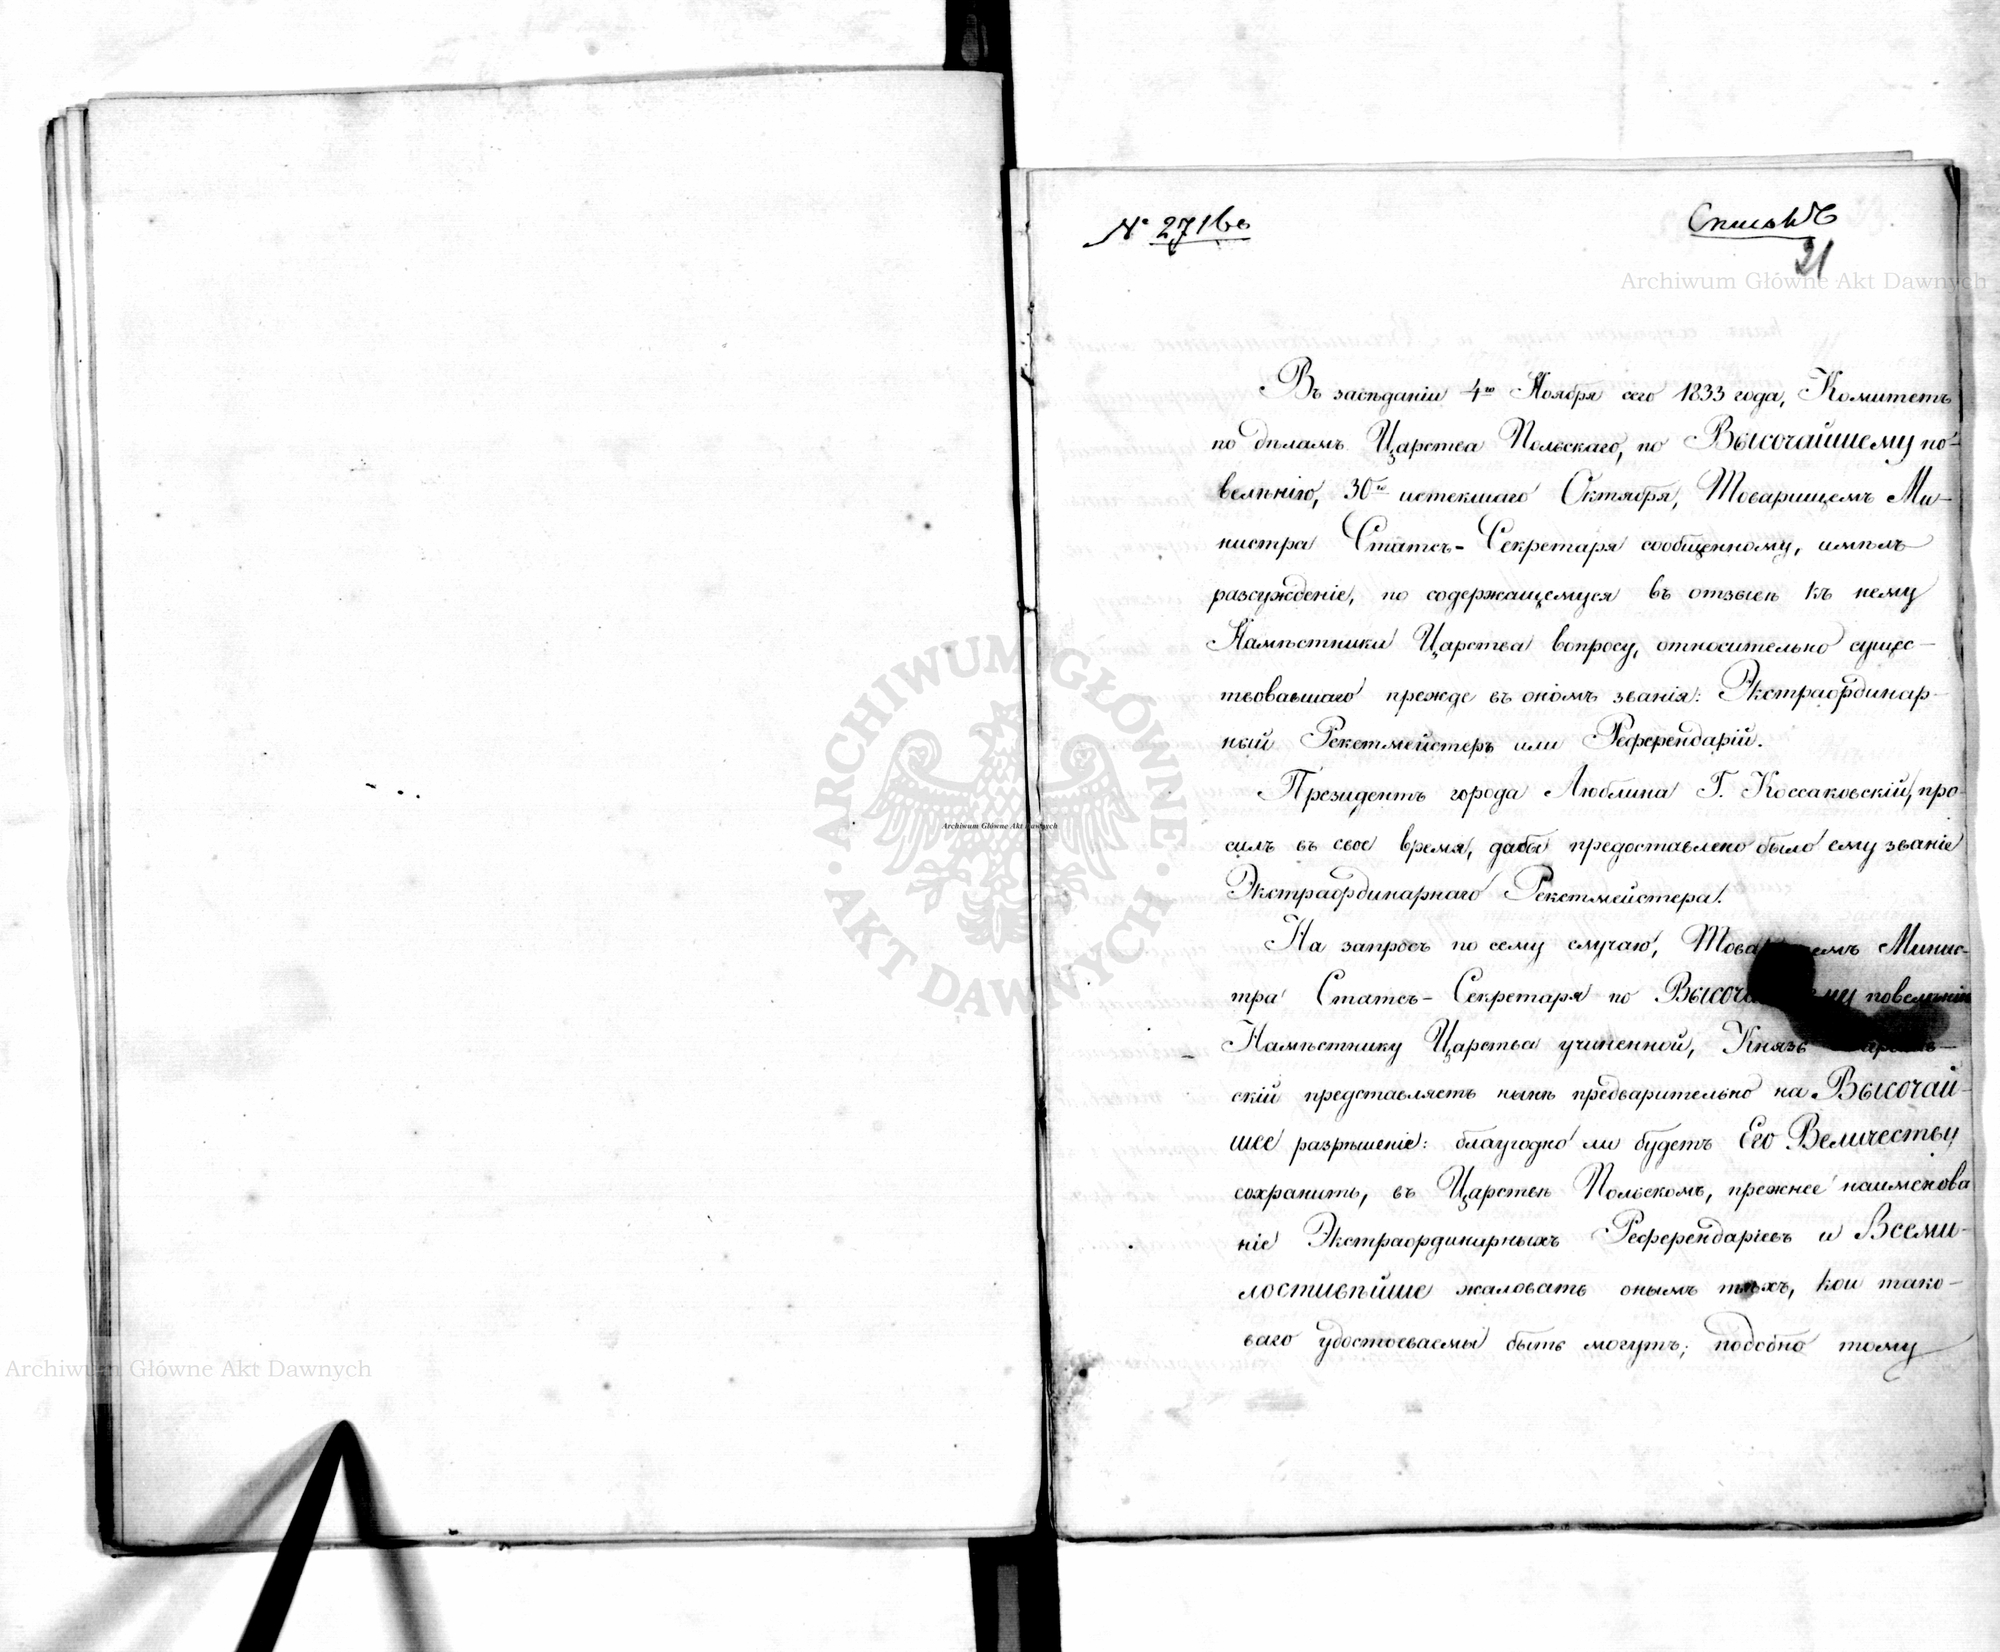 № 2716
Списокъ
21
Archiwum Główne Akt Dawnych
Въ засѣданіи 4го Ноября сего 1833 года, Комитетъ
по дѣламъ Царства Польскаго, по Высочайшему по-
велѣнію, 30го истекшаго Октября, Товарищемъ Ми-
нистра Статсъ-Секретаря сообщенному, имѣлъ
разсужденіе, по содержащемуся въ отзывѣ къ нему
Намѣстника Царства вопросу, относительно сущес-
твовавшаго прежде въ ономъ званія: Экстраординар-
ный Рекетмейстеръ или Референдарій.
Президентъ города Люблина Г. Коссаковскій, про-
силъ въ свое время, дабы предоставлено было ему званіе
Экстраординарнаго Рекетмейстера.
На запросъ по сему случаю, Минис-
тра Статсъ-Секретаря по повелѣнію
Намѣстнику Царства учиненной, Князь
скій представляетъ нынѣ предварительно на Высочай-
шее разрѣшеніе: благоугодно ли будетъ Его Величеству
сохранить, въ Царствѣ Польскомъ, прежнее наименова
ніе Экстраординарныхъ Референдаріевъ и Всеми-
лостивѣйше жаловать онымъ тѣхъ, кои тако-
ваго удостоеваемы быть могутъ; подобно тому
ARCHIWUM GŁÓWNE AKT DAWNYCH
Archiwum Główne Akt Dawnych
Archiwum Główne Akt Dawnych